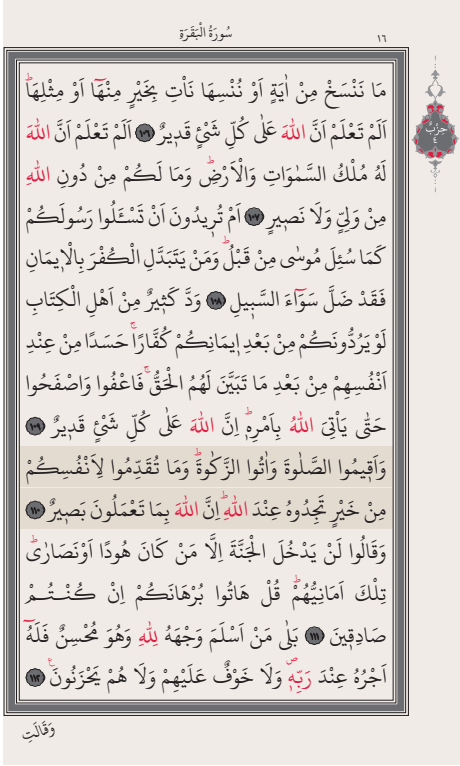 سُورَةُ الْبَقَرَةِ
١٦
مَا نَنْسَخْ مِنْ اٰيَةٍ اَوْ نُنْسِهَا نَأْتِ بِخَيْرٍ مِنْهَٓا اَوْ مِثْلِهَاۜ
اَلَمْ تَعْلَمْ اَنَّ اللّٰهَ عَلٰى كُلِّ شَيْءٍ قَد۪يرٌ ﴿١٠٦﴾ اَلَمْ تَعْلَمْ اَنَّ اللّٰهَ
لَهُ مُلْكُ السَّمٰوَاتِ وَالْاَرْضِۜ وَمَا لَكُمْ مِنْ دُونِ اللّٰهِ
مِنْ وَلِيٍّ وَلَا نَص۪يرٍ ﴿١٠٧﴾ اَمْ تُر۪يدُونَ اَنْ تَسْـَٔلُوا رَسُولَكُمْ
كَمَا سُئِلَ مُوسٰى مِنْ قَبْلُۜ وَمَنْ يَتَبَدَّلِ الْكُفْرَ بِالْا۪يمَانِ
فَقَدْ ضَلَّ سَوَٓاءَ السَّب۪يلِ ﴿١٠٨﴾ وَدَّ كَث۪يرٌ مِنْ اَهْلِ الْكِتَابِ
لَوْ يَرُدُّونَكُمْ مِنْ بَعْدِ ا۪يمَانِكُمْ كُفَّارًاۚ حَسَدًا مِنْ عِنْدِ
اَنْفُسِهِمْ مِنْ بَعْدِ مَا تَبَيَّنَ لَهُمُ الْحَقُّۚ فَاعْفُوا وَاصْفَحُوا
حَتّٰى يَأْتِيَ اللّٰهُ بِاَمْرِه۪ۜ اِنَّ اللّٰهَ عَلٰى كُلِّ شَيْءٍ قَد۪يرٌ ﴿١٠٩﴾
وَاَق۪يمُوا الصَّلٰوةَ وَاٰتُوا الزَّكٰوةَۜ وَمَا تُقَدِّمُوا لِاَنْفُسِكُمْ
مِنْ خَيْرٍ تَجِدُوهُ عِنْدَ اللّٰهِۜ اِنَّ اللّٰهَ بِمَا تَعْمَلُونَ بَص۪يرٌ ﴿١١٠﴾
وَقَالُوا لَنْ يَدْخُلَ الْجَنَّةَ اِلَّا مَنْ كَانَ هُودًا اَوْ نَصَارٰىۜ
تِلْكَ اَمَانِيُّهُمْۜ قُلْ هَاتُوا بُرْهَانَكُمْ اِنْ كُنْتُمْ
صَادِق۪ينَ ﴿١١١﴾ بَلٰى مَنْ اَسْلَمَ وَجْهَهُ لِلّٰهِ وَهُوَ مُحْسِنٌ فَلَهُٓ
اَجْرُهُ عِنْدَ رَبِّه۪ۖ وَلَا خَوْفٌ عَلَيْهِمْ وَلَا هُمْ يَحْزَنُونَ۟ ﴿١١٢﴾
وَقَالَتِ
حزب
٤